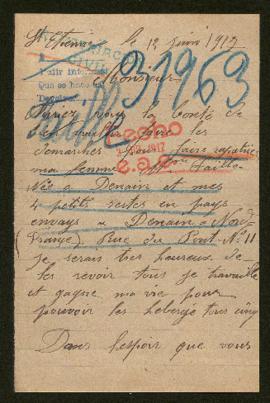 St Etienne le 12 Juin 1917
31963
Monsieur
Ayiez vous la bonté de
bien vouloir faire les
démarches pour faire rapatrier
ma femme
Née à Denain et mes
4 petits restés en pays
envays a Denain Nord
(France) Rue du Pont N° 11
je serais bien heureux de
les revoir tous je travaille
et gagne ma vie pour
pouvoir les hébergé tous cinq
Dans l'espoir que vous